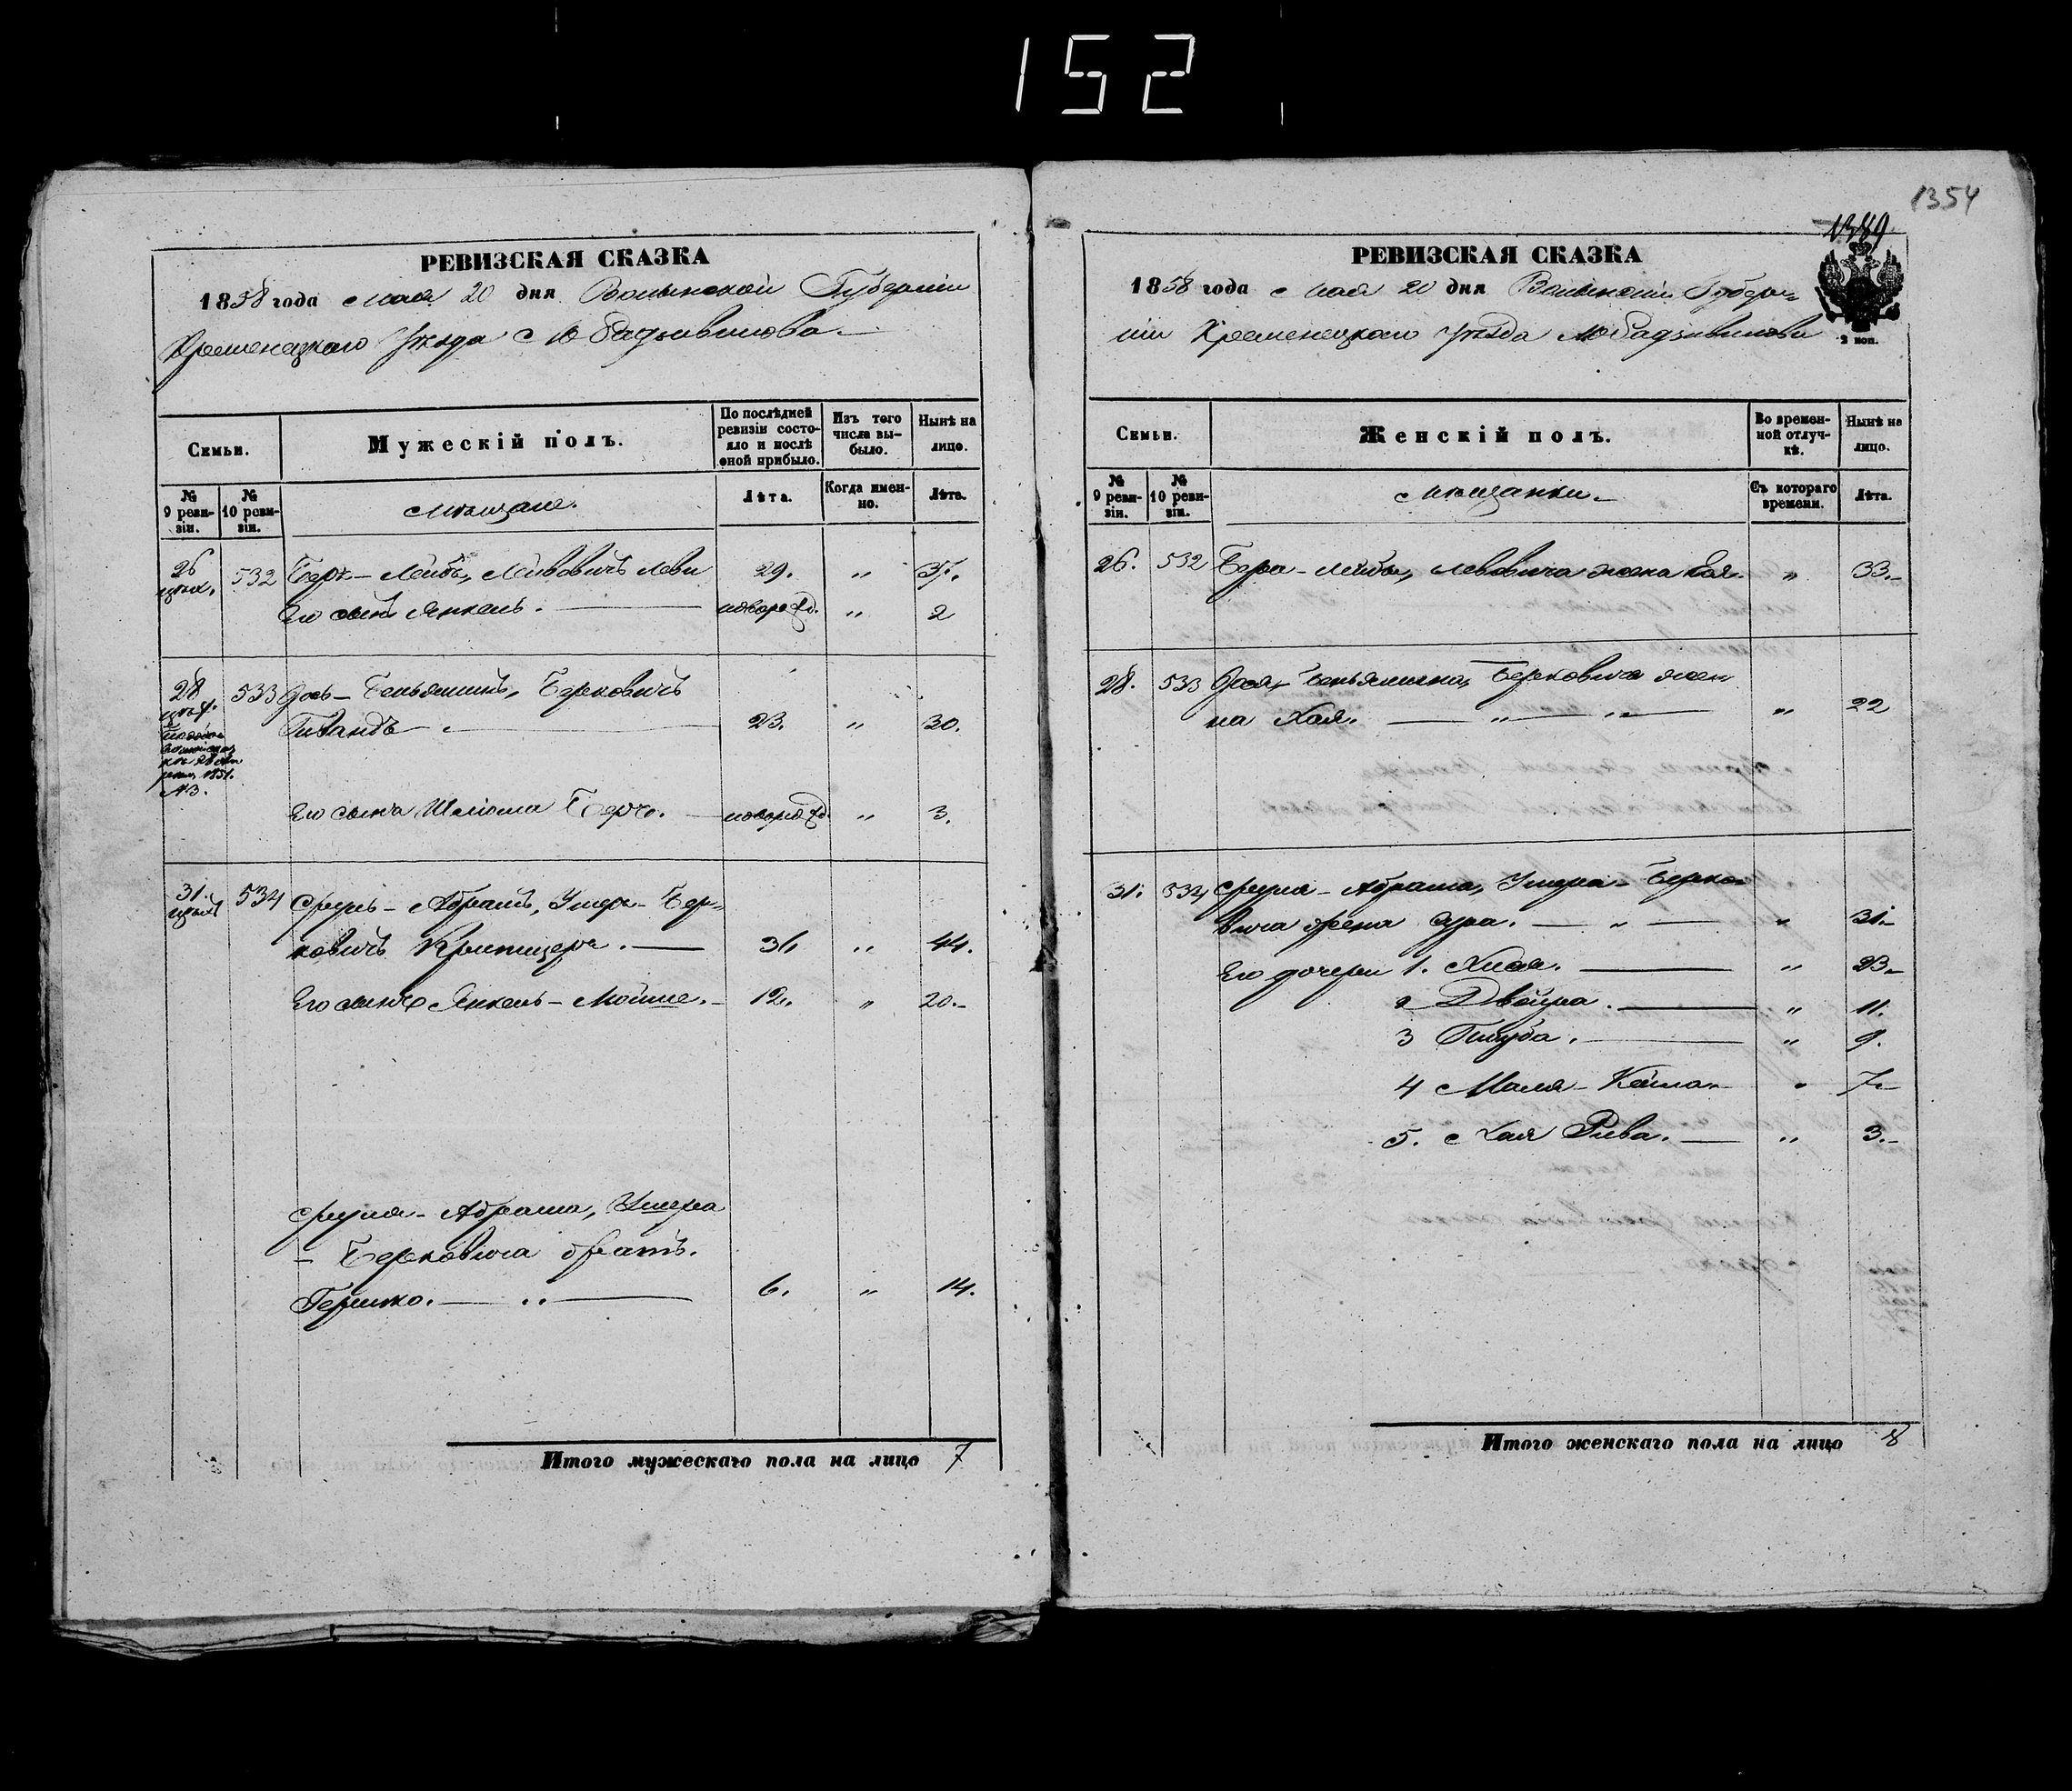 152
1354
1389
РЕВИЗСКАЯ СКАЗКА
1858 года Мая 20 дня Волынской Губерніи
Кременецкаго Уѣзда М Радзивилова
Семьи.
Мужескій полъ.
По послѣдней ревизіи состояло и послѣ оной прибыло.
Изъ того числа выбыло.
Нынѣ на лицо.
№ 9 ревизіи.
№ 10 ревизіи.
Мѣщане.
Лѣта.
Когда именно.
Лѣта.
26 532 Берко - Лейба, Лейбовичъ Леви 29. " 37.
Его сынъ Янкель. новорожд. " 2
28 533 Беньяминъ, Берковичъ
23. " 30.
1851.
№3.
Его сынъ Шлиома Берко. новорожд. " 3.
31. 534 Сруль - Абрамъ, Ушеръ - Бер-
ковичъ 36 " 44.
Его сынъ Янкель - Мойше. 12. " 20.
Сруля - Абрама, Ушера
- Берковича братъ.
Гершко. 6. " 14.
Итого мужескаго пола на лицо 7
РЕВИЗСКАЯ СКАЗКА
1858 года Мая 20 дня Волынской Губер-
ніи Кременецкаго Уѣзда М Радзивилова
2 коп.
Семьи.
Женскій полъ.
Во временной отлучкѣ.
Нынѣ на лицо.
№ 9 ревизіи.
№ 10 ревизіи.
Мѣщанки.
Съ котораго времени.
Лѣта.
26. 532 Берка - Лейбы, Лейбовича жена Хая. " 33.
28. 533 Беньямина, Берковича жен
на Хая. " 22
31. 534 Сруля - Абрама, Ушера - Берко-
вича жена Сура. " 31.
Его дочери 1. " 23
2 Двойра. " 11.
3 " 9.
4 Маля - " 7
5. Хая Рива. " 3.
Итого женскаго пола на лицо 8